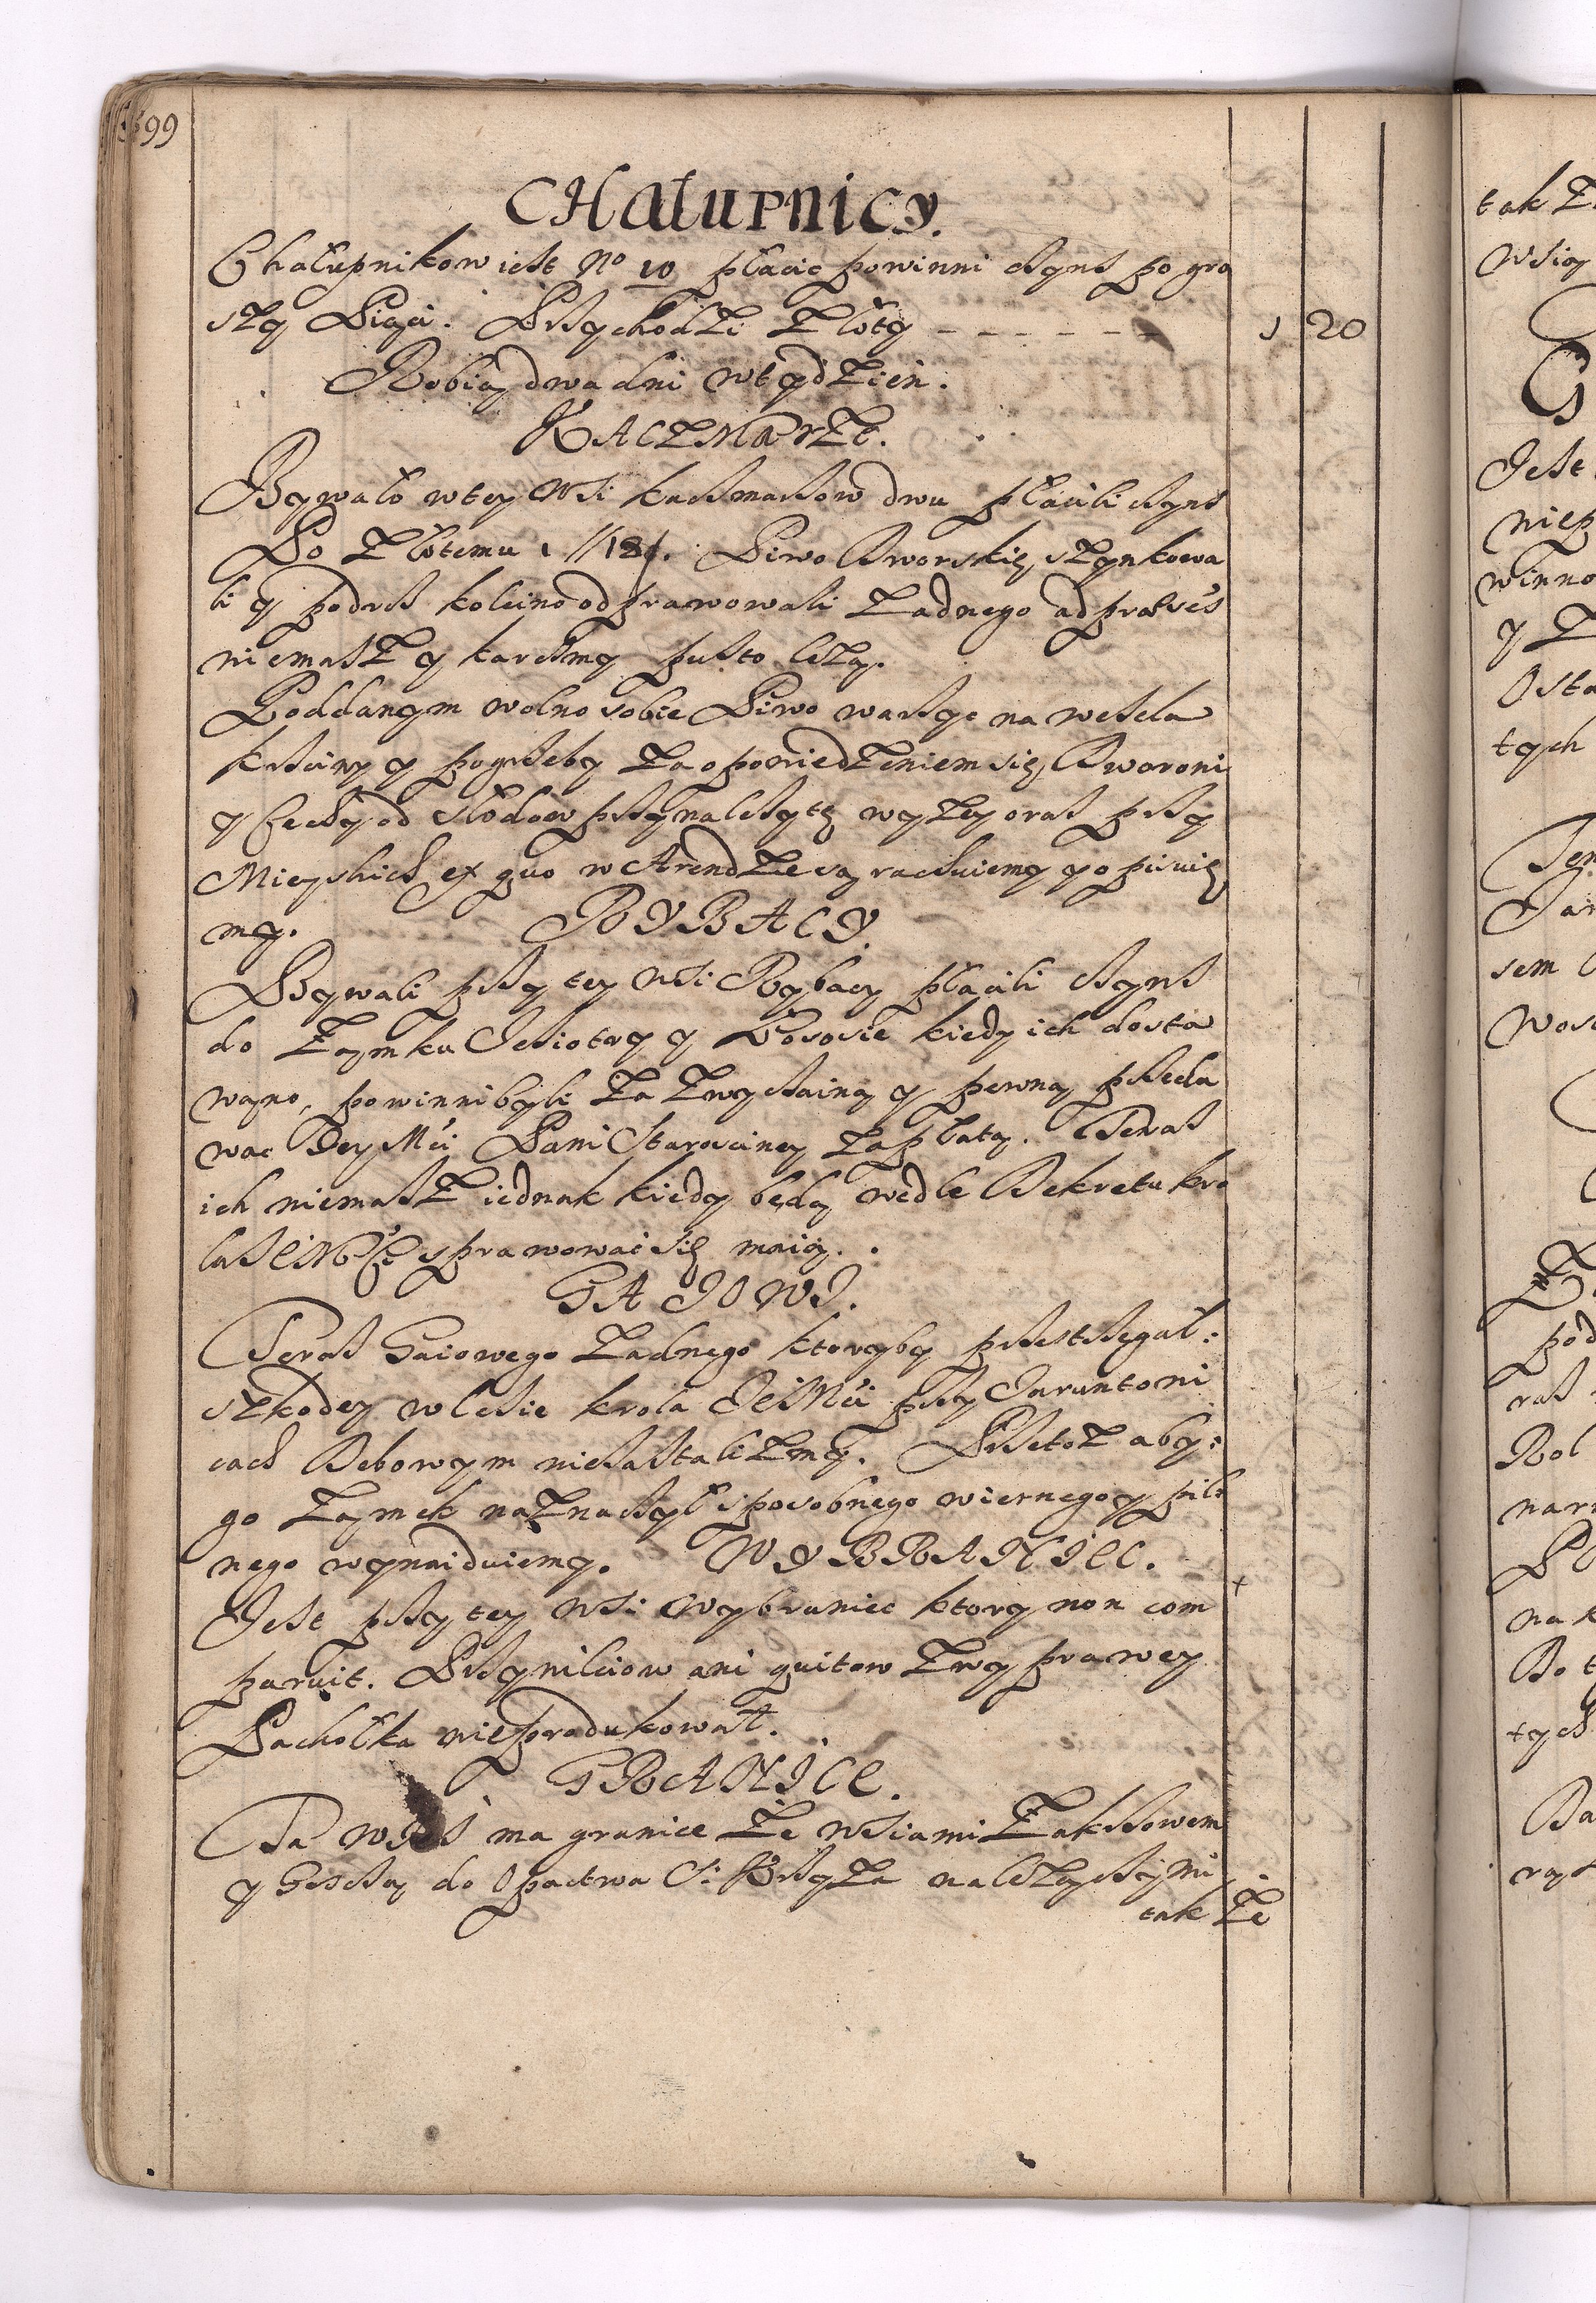 99
CHałupnicy.
Chałupnikow iest No 10 płacic powinni czynsz po gro
szy Pięci. Przychodzi Złoty - - - - - - 1 20
Robią dwa dni w tydzień.
KACZMarze.
Bywało w tey wsi kaczmarzow dwu płacili czynsz
Po Złotemu 1 //18/. Piwo Dworskie, szynkowa
li y podroż koleino odprawowali Żadnego ad præsens
niemasz y karczmy pusto leżą.
Poddanym wolno sobie Piwo warzyc na wesela
krzciny y pogrzeby za opowiedzeniem się, Dworowi
y Czechy od słodow przynależyte wyżey oraz przy
Mieyskich ex quo w Arendzie są rachuiemy
my.
RYBACY.
Bywali przy tey wsi Rybacy płacili czynsz
do Zamku Jesiotry y Łososie kiedy ich dosta
wano, powinni byli za zwyczainą y pewną przeda
wac Jey Mci Pani Starościney zapłatą. Teraz
ich niemasz iednak kiedy będą wedle Dekretu kro
la JeMCi sprawować się maią.
GAJOWI.
Teraz Gaiowego Żadnego ktoryby przestrzegał
szkody w lesie krola JeiMci przy Jaruntowi
cach Dębowym niezastalizmy. Przetoż aby
go Zamek naznaczył sposobnego wiernego y pil
nego wynaiduiemy. WYBRANIEC.
Jest przy tey wsi Wybraniec ktory non com
paruit. Przywileiow ani quitow z wyprawey
Pachołka nieproducował.
GRANICE.
Ta wieś ma granice ze wsiami Zakrzowem
y do Opactwa S: Krzyża należącymi,
tak że